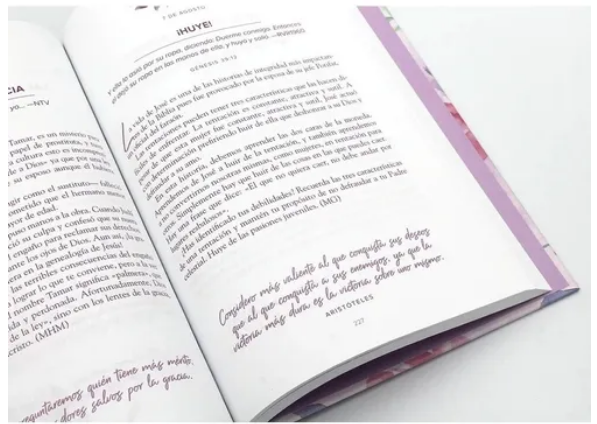 CIA
yo... —NTV
Tamar, es un misterio para
papel de prostituta, y tuvo
cultura esto es incompren
de a Dios» ya que por una le
su esposo aunque él hubiera
gir como el sustituto— falleció
ometido que el hermano menor
yor de edad.
uso manos a la obra. Cuando Judá
ció su culpa y confesó que su nuera
engaño para reclamar sus derechos
ante los ojos de Dios. Aun así, ¡la gra
era en la genealogía de Jesús!
las terribles consecuencias del engaño
lograr lo que te conviene, pero a la
nombre Tamar significa «palmera»,
da y perdonada. Afortunadamente, Dios
de la ley», sino con los lentes de la gracia
cristo. (MHM)
eguntaremos quién tiene más mérito,
dores salvos por la gracia.
7 DE AGOSTO
¡HUYE!
Y ella lo asió por su ropa, diciendo: Duerme conmigo. Entonces
él dejó su ropa en las manos de ella, y huyó y salió. —RVR1960
GÉNESIS 39:12
La vida de José es una de las historias de integridad más impactan-
tes de la Biblia pues fue provocado por la esposa de su jefe Potifar,
el oficial del faraón.
Las tentaciones pueden tener tres características que las hacen di-
fíciles de enfrentar. La tentación es constante, atractiva y sutil. A
pesar de que esta mujer fue constante, atractiva y sutil, José actuó
con determinación prefiriendo huir de ella que deshonrar a su Dios y
defraudar a su amo.
En esta historia, debemos aprender las dos caras de la moneda.
Aprendemos de José a huir de la tentación, y también aprendamos
a no convertirnos nosotras mismas, como mujeres, en tentación para
otros. Simplemente hay que huir de las cosas en las que puedes caer.
Hay una frase que dice: «El que no quiera caer, no debe andar por
lugares resbalosos».
¿Has identificado tus debilidades? Recuerda las tres características
de una tentación y mantén tu propósito de no defraudar a tu Padre
celestial. Huye de las pasiones juveniles. (MO)
Considero más valiente al que conquista sus deseos
que al que conquista a sus enemigos, ya que la
victoria más dura es la victoria sobre uno mismo.
ARISTÓTELES
227